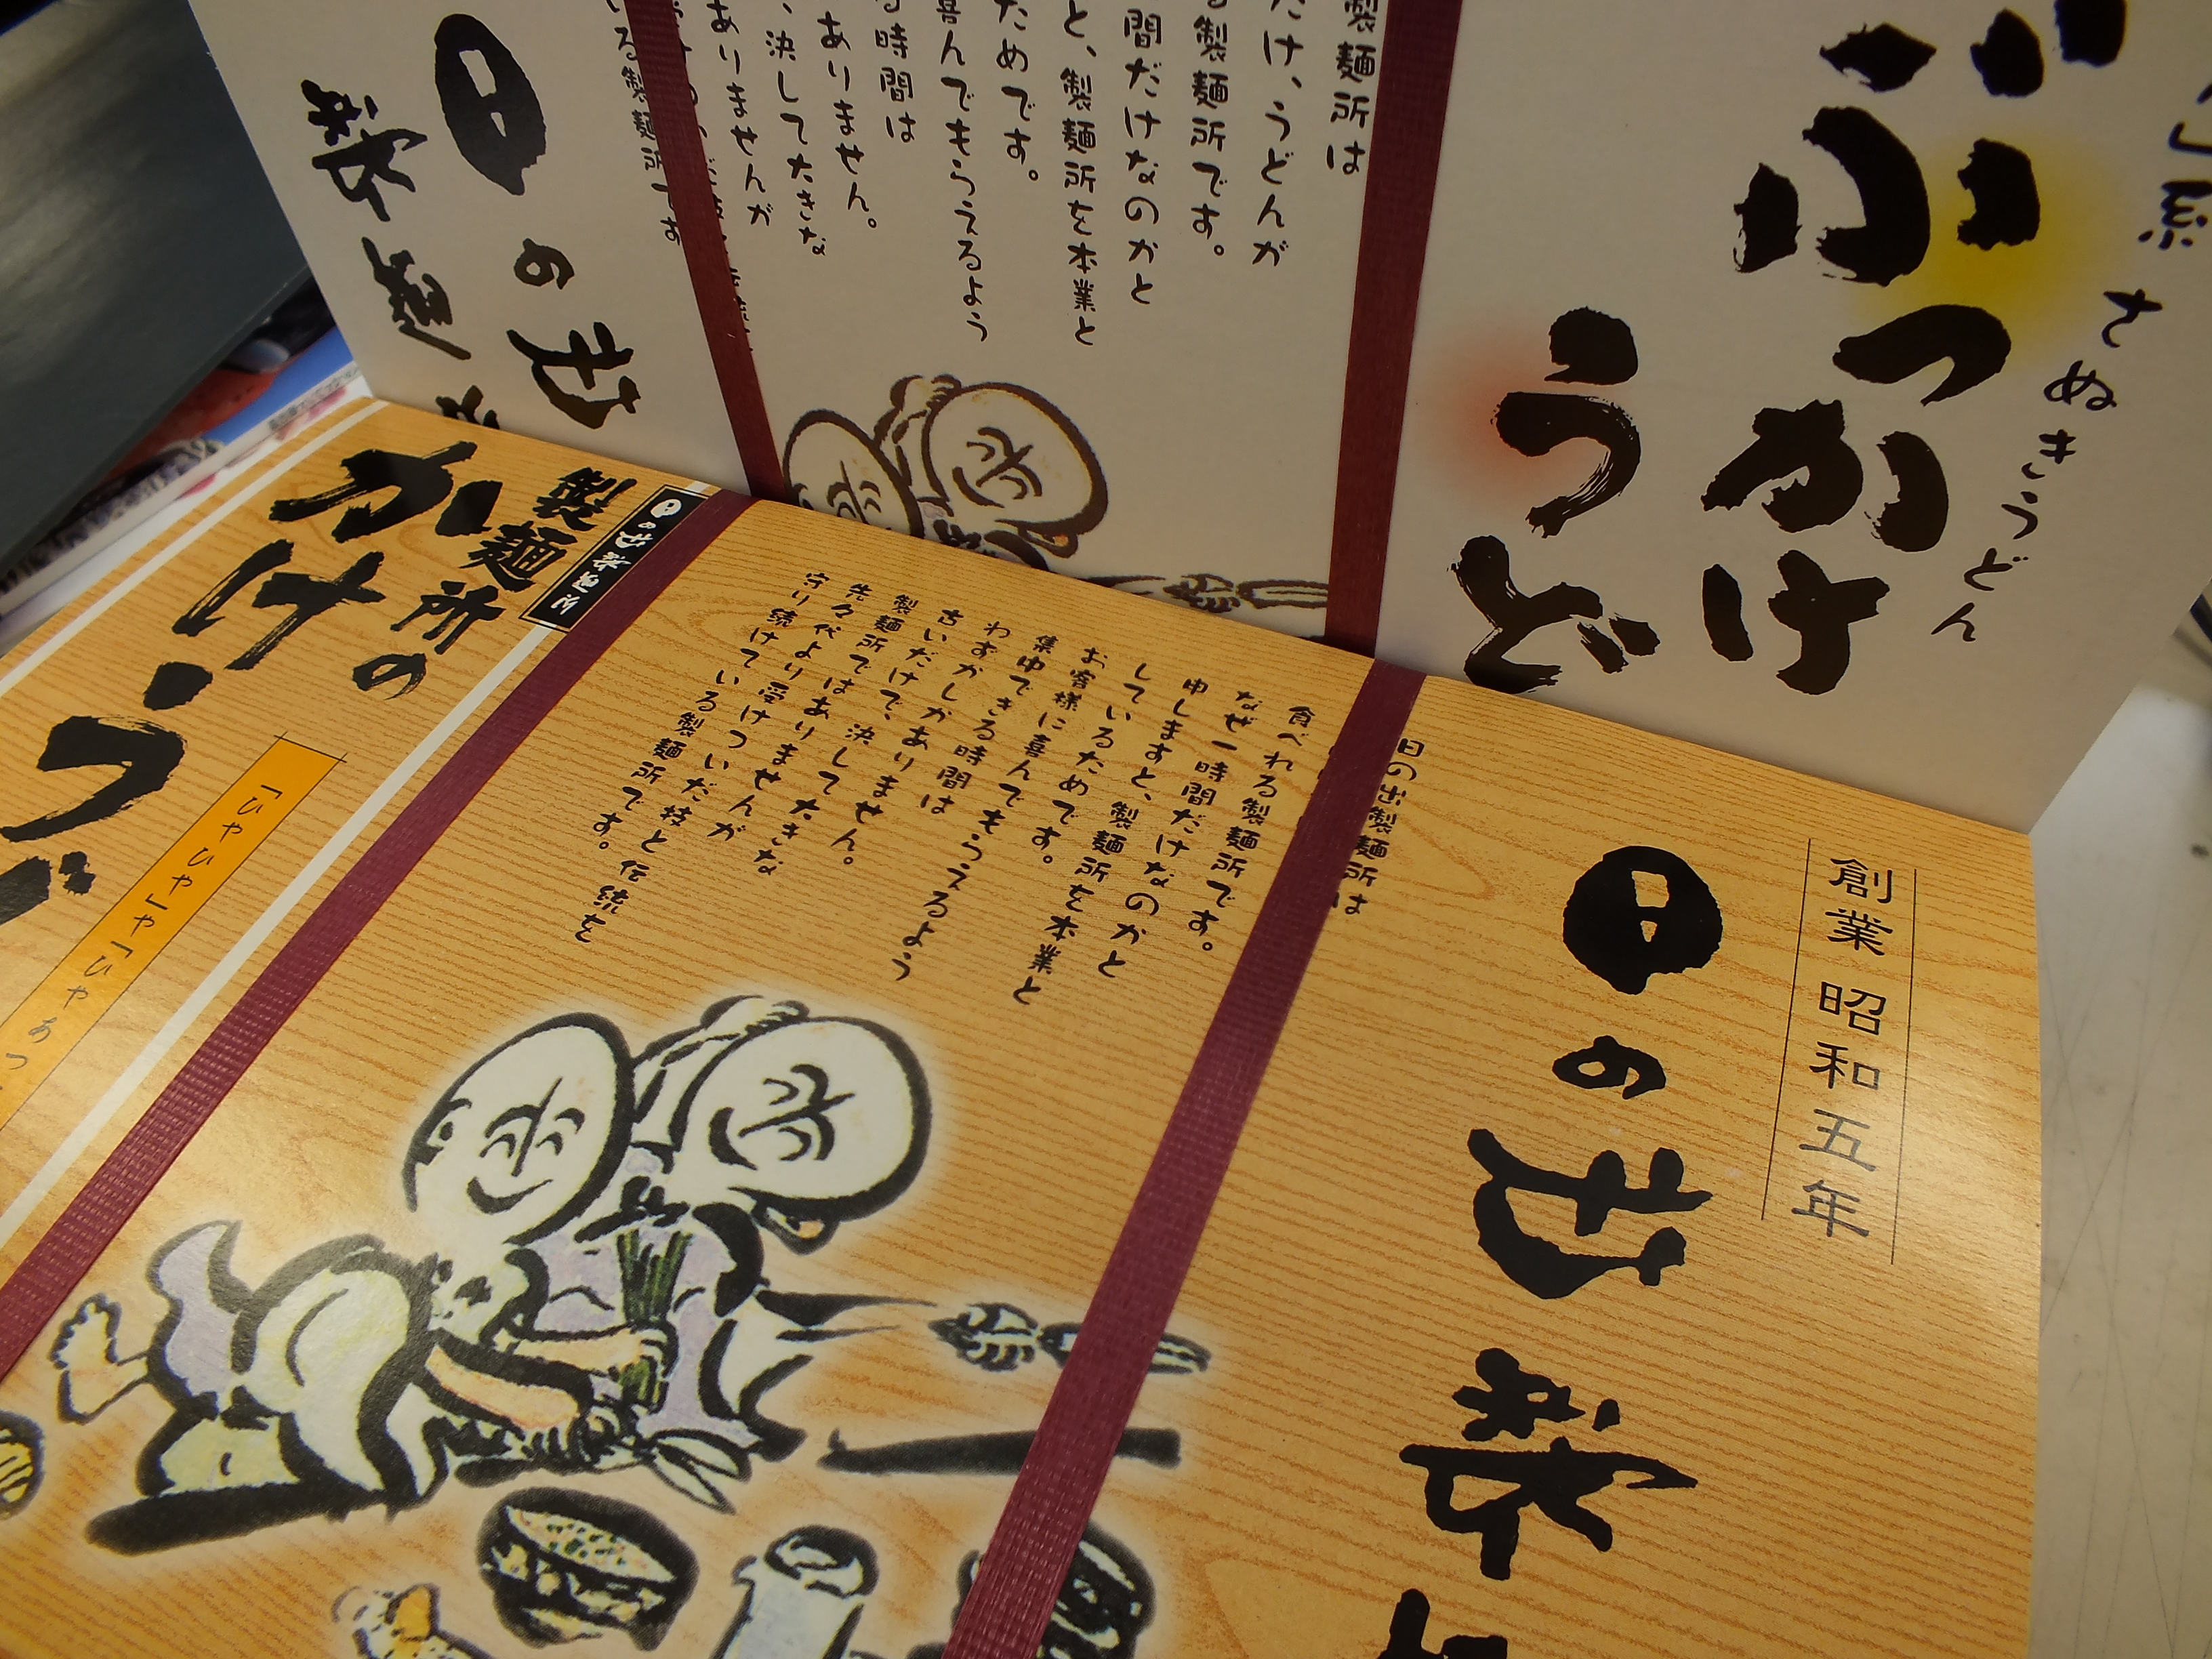 さぬきうどん
ぶっかけ
うど
製麺所は
だけ、うどんが
製麺所です。
間だけなのかと
と、製麺所を本業と
ためです。
喜んでもらえるよう
る時間は
ありません。
、決してたきな
ありませんが
いる製麺所です
日の出
製麺
創業昭和五年
日の出
製
日の出製麺所は
食べれる製麺所です。
なぜ一時間だけなのかと
申しますと、製麺所を本業と
しているためです。
お客様に喜んでもらえるよう
集中できる時間は
わずかしかありません。
古いだけで、決してたきな
製麺所ではありませんが
先々代より受けついだ技と伝統を
守り続けている製麺所です。
日の出製麺所
製麺所の
かけうど
「ひやひや」や「ひやあつ